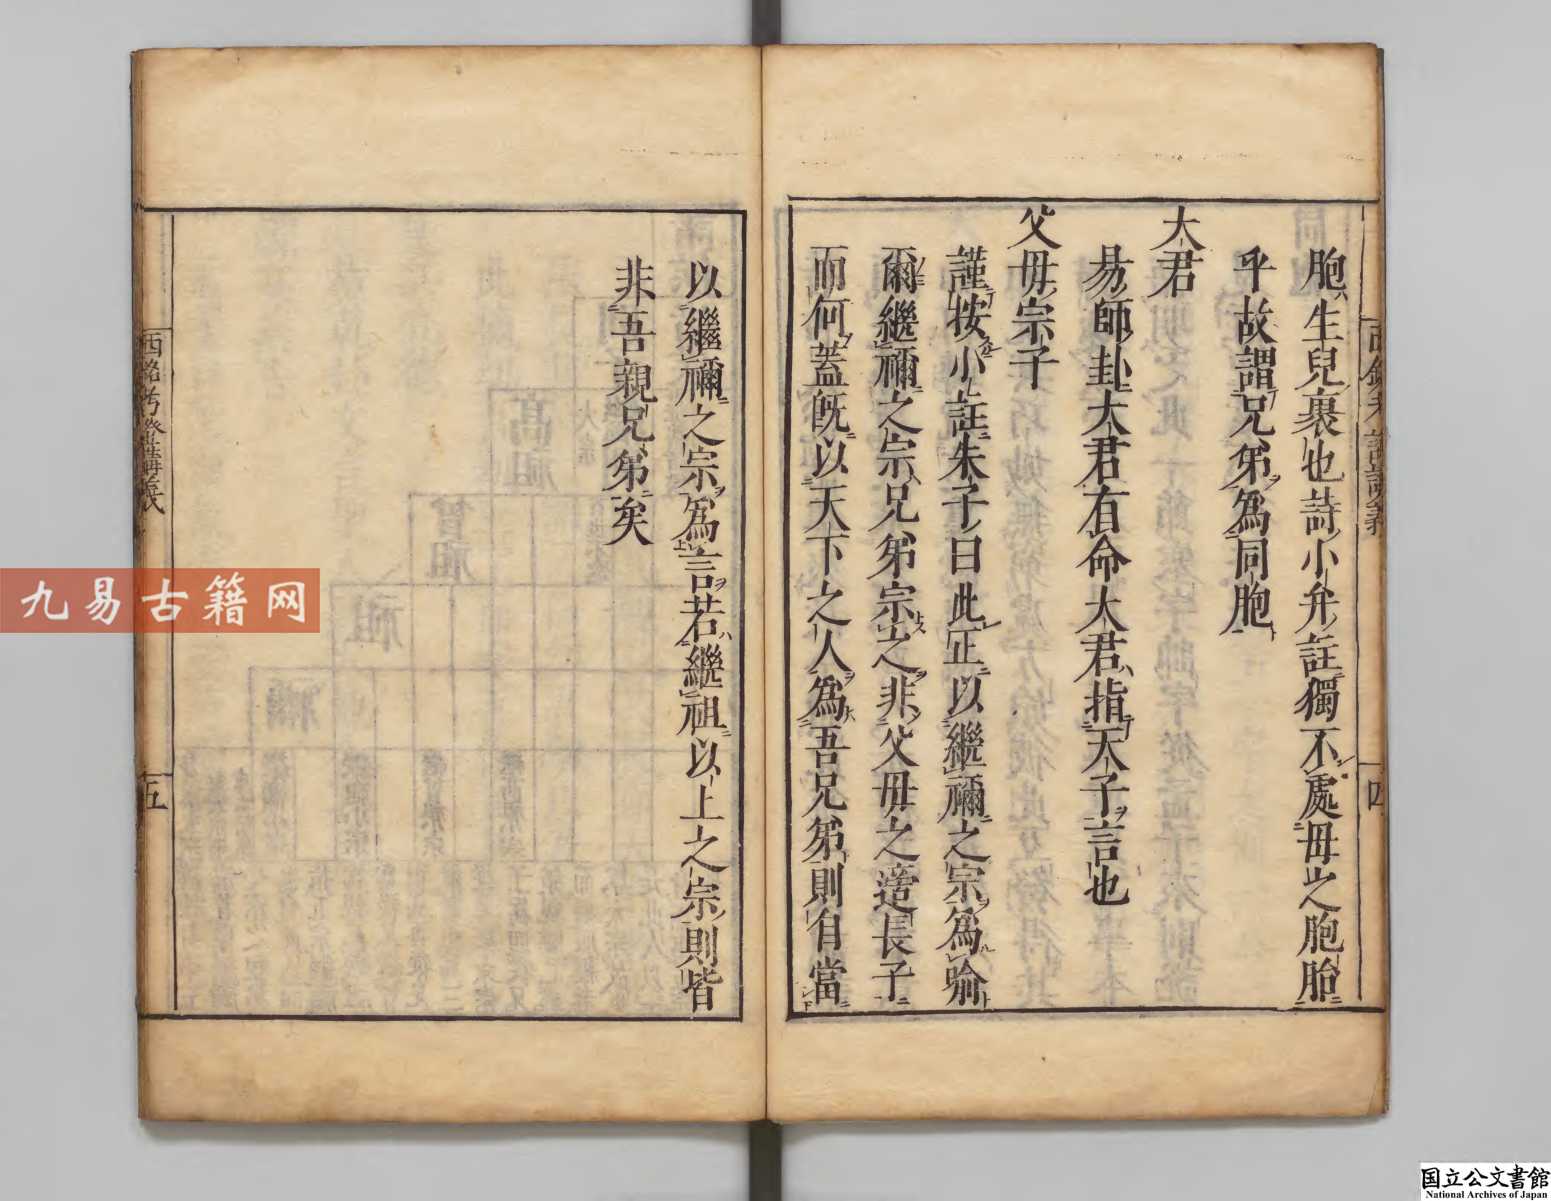 胞生兒裹也詩小弁註獨不處母之胞胎
乎故謂兄弟為同胞
大君
易師卦大君有命大君指天子言也
父母宗子
謹按小註朱子曰此正以繼禰之宗為喻
爾繼禰之宗兄弟宗之非父母之適長子
而何蓋既以天下之人為吾兄弟則自當
四
以繼禰之宗為言若繼祖以上之宗則皆
非吾親兄弟矣
西銘考證講義
五
九易古籍网
国立公文書館
National Archives of Japan